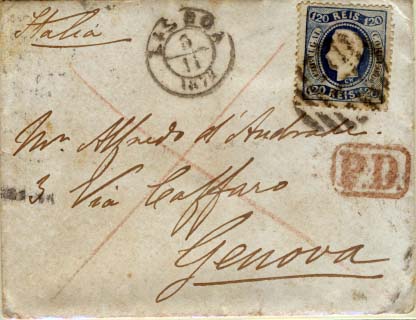 Italia
LISBOA
5
11
1873
120 REIS 120
PORTUGAL CORREIO
120 REIS 120
Mr. Alfredo d'Andrade.
P.D.
3 Via Caffaro
Genova